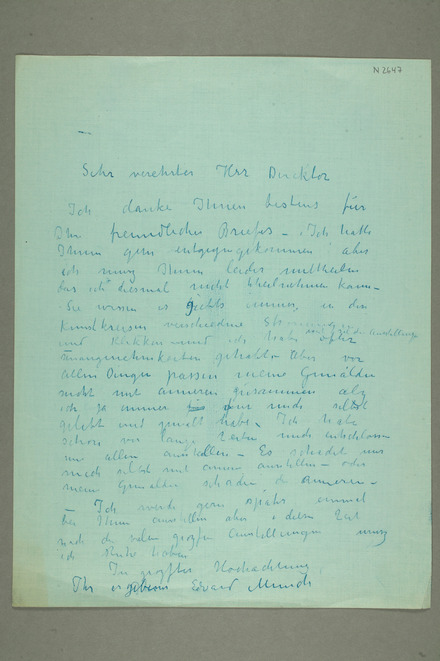 N 2647
Sehr verehrter Herr Direktor
Ich danke Ihnen bestens für
Ihr freundliches Briefes – Ich hatte
Ihnen gern entgegengekommen aber
ich muss Ihnen leider mittheilen
das ich diesmal nicht theilnehmen kann –
Sie wissen es immer in den
Kunstkreisen verschiedene
und Klikken und ich habe öfter
unangenehmkeiten gehabt vor
allen Dinger passen meine Gemälde
nicht mit anderen zusammen als
ich ja immer für mich selbst
gelebt und gemalt habe. Ich habe
schon vor lange Zeiten mich entschlossen
nur allein ausstellen – Es schadet mir
mich selbst mit annen austellen – oder
meine Gemälde schaden de anneren –
– Ich werde gern später einmal
bei Ihnen ausstellen aber in diese Zeit
nach den vielen grossen Ausstellungen muss
ich Ruhe haben
In grösster Hochachtung
Ihr ergebener Edvard Munch